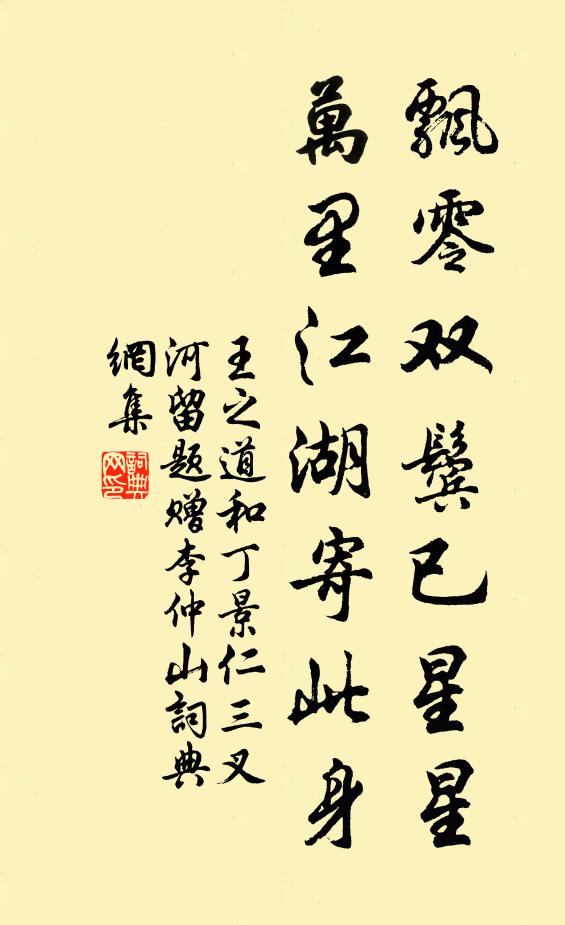 飄零双鬓已星星
萬里江湖寄此身
王之道和丁景仁三叉
河留题赠李仲山詞典
網集
詞典
网印